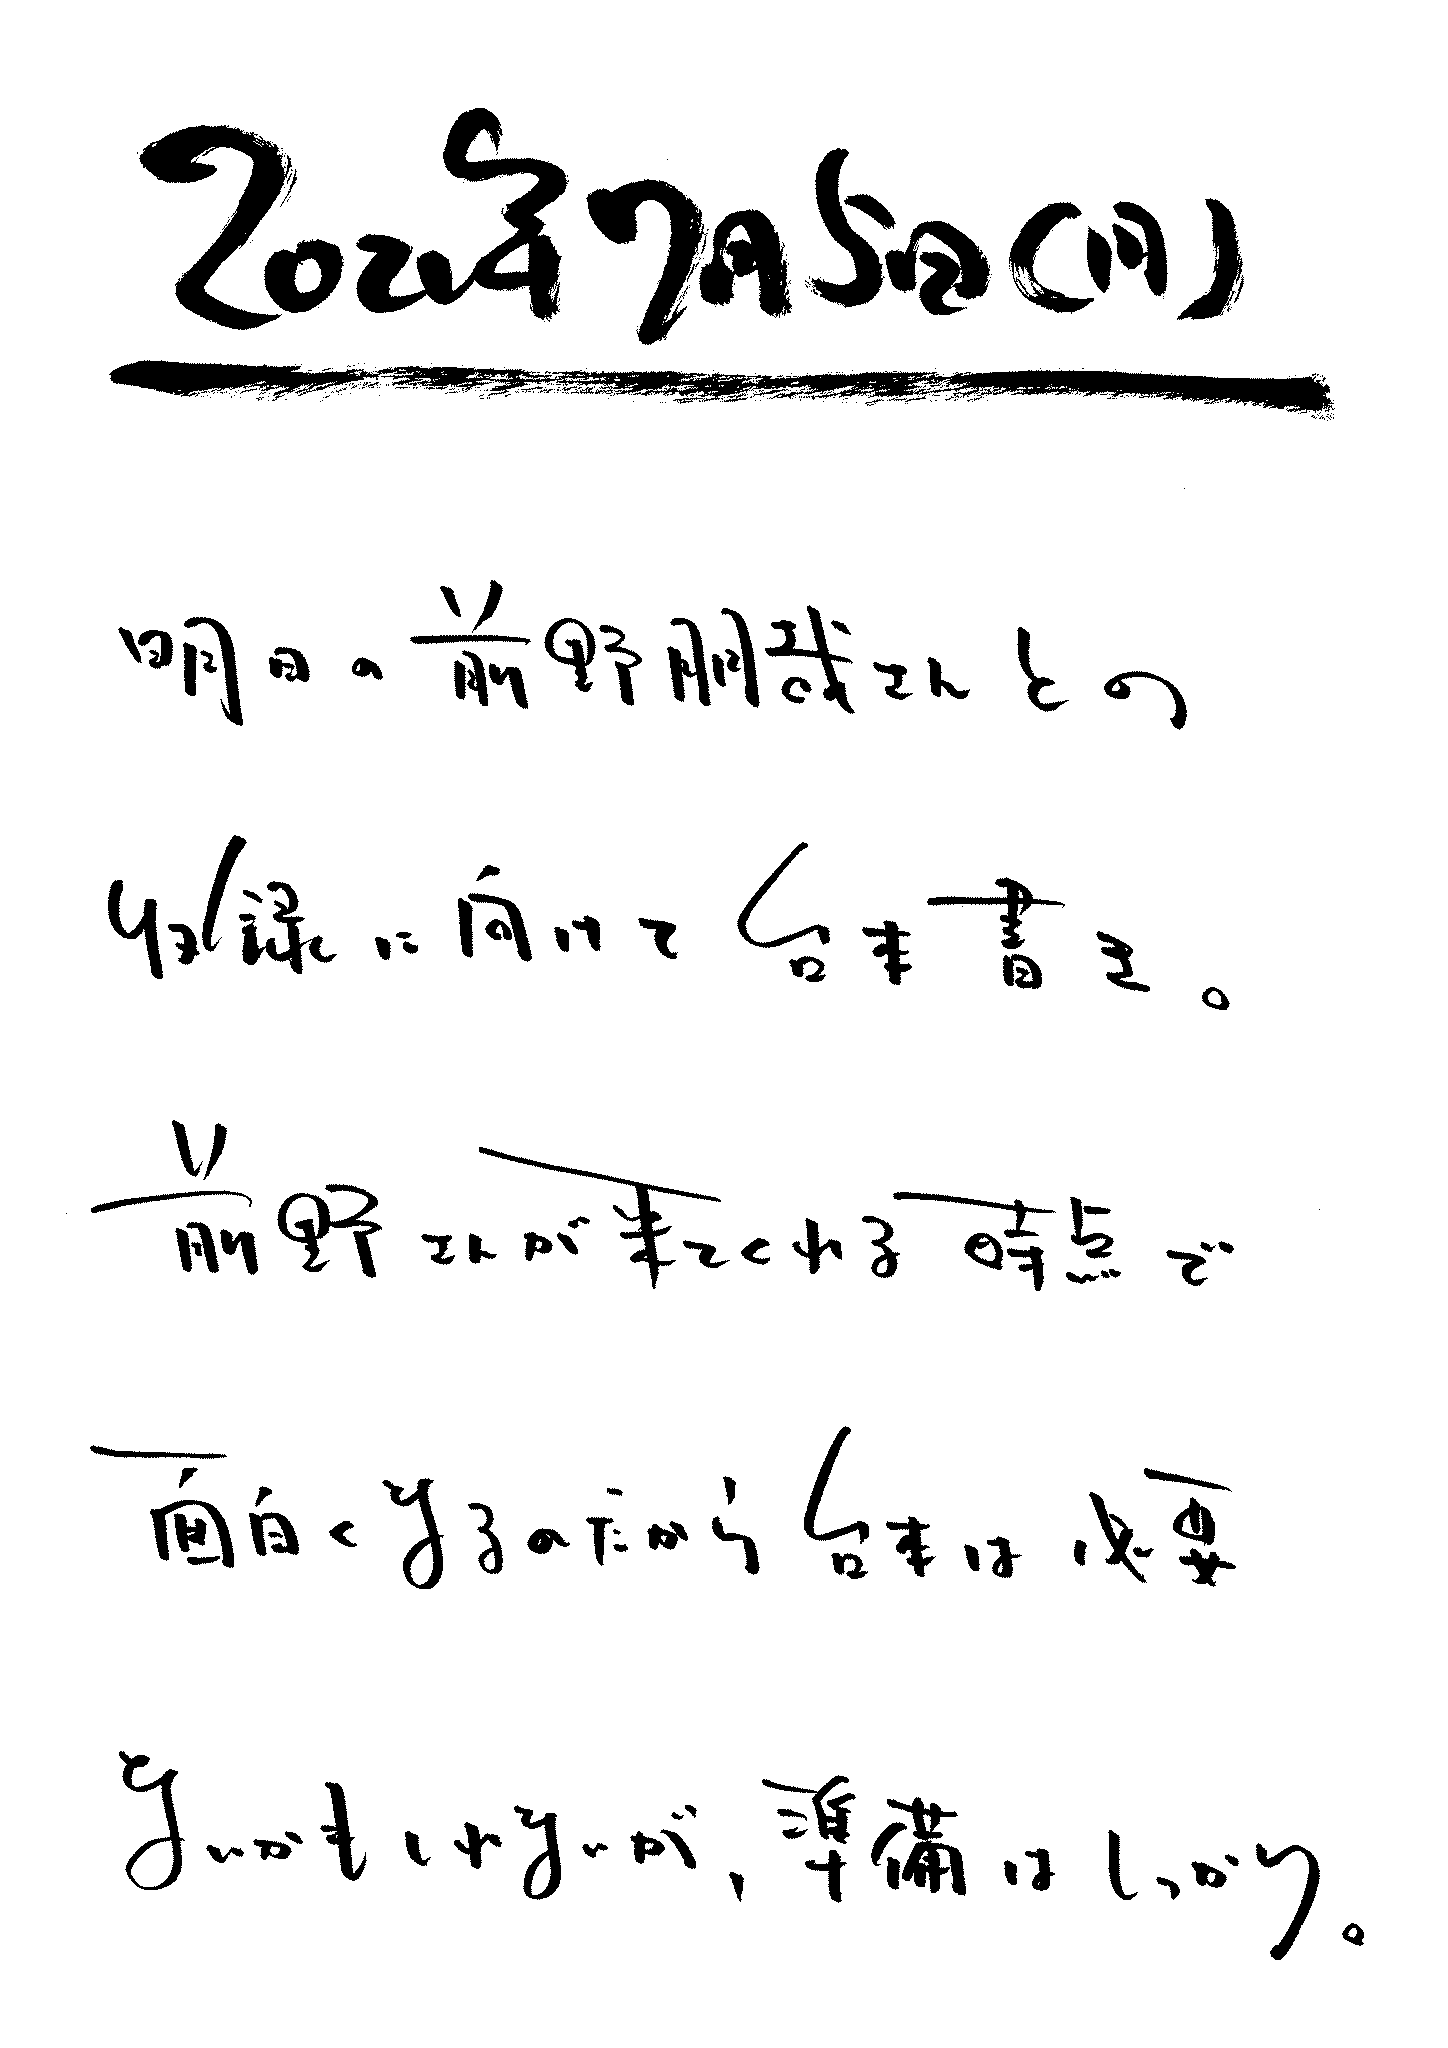 2021年7月5日(月)
明日の前野朋哉さんとの
収録に向けて台本書き。
前野さんが来てくれる時点で
面白くなるのだから台本は必要
ないかもしれないが、準備はしっかり。